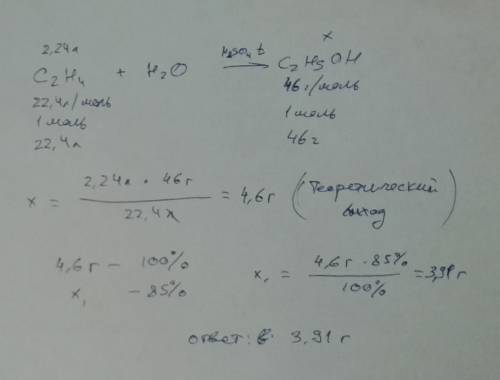 2,24л x
C₂H₄ + H₂O H₂SO₄ t → C₂H5OH
22,4л/моль 46 г/моль
1 моль 1 моль
22,4л 46г
x = 2,24л • 46г / 22,4л = 4,6г (Теоретический выход)
4,6г – 100%
x₁ – 85%
x₁ = 4,6г • 85% / 100% = 3,91г
ответ: 3,91 г